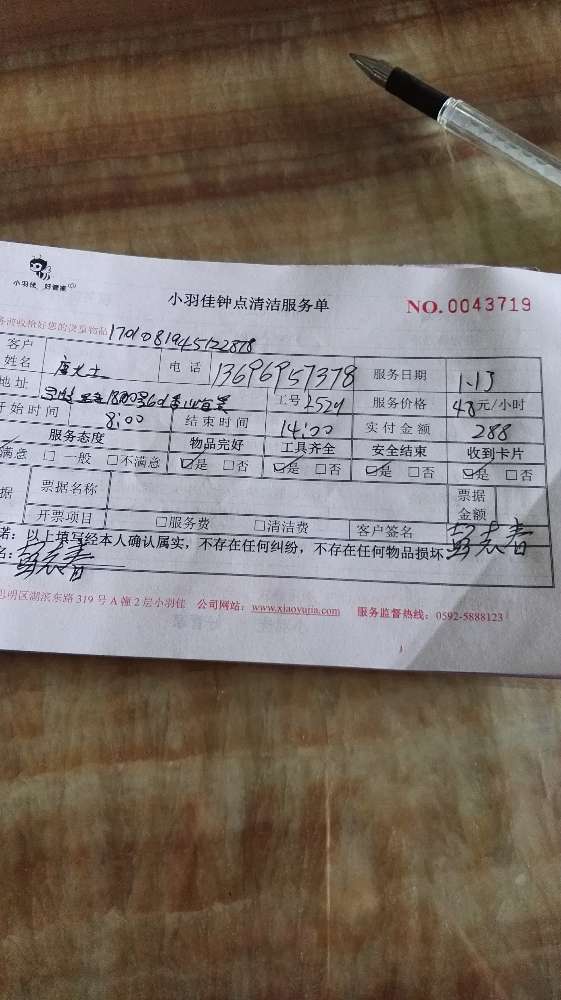 小羽佳 好管家
小羽佳钟点清洁服务单 NO. 0043719
务请收检好您的贵重物品 1701081945122878
客户姓名 唐女士 电话 13696957378 服务日期 1.13
地址 工号 2529 服务价格 48元/小时
开始时间 8:00 结束时间 14:00 实付金额 288
服务态度 物品完好 工具齐全 安全结束 收到卡片
满意 □一般 □不满意 ☑是 □否 ☑是 □否 ☑是 □否 ☑是 □否
据 票据名称 票据金额
开票项目 □服务费 □清洁费 客户签名
诺：以上填写经本人确认属实，不存在任何纠纷，不存在任何物品损坏
名：
思明区湖滨东路 319 号 A 幢 2 层小羽佳 公司网站：www.xiaoyujia.com 服务监督热线：0592-5888123
1